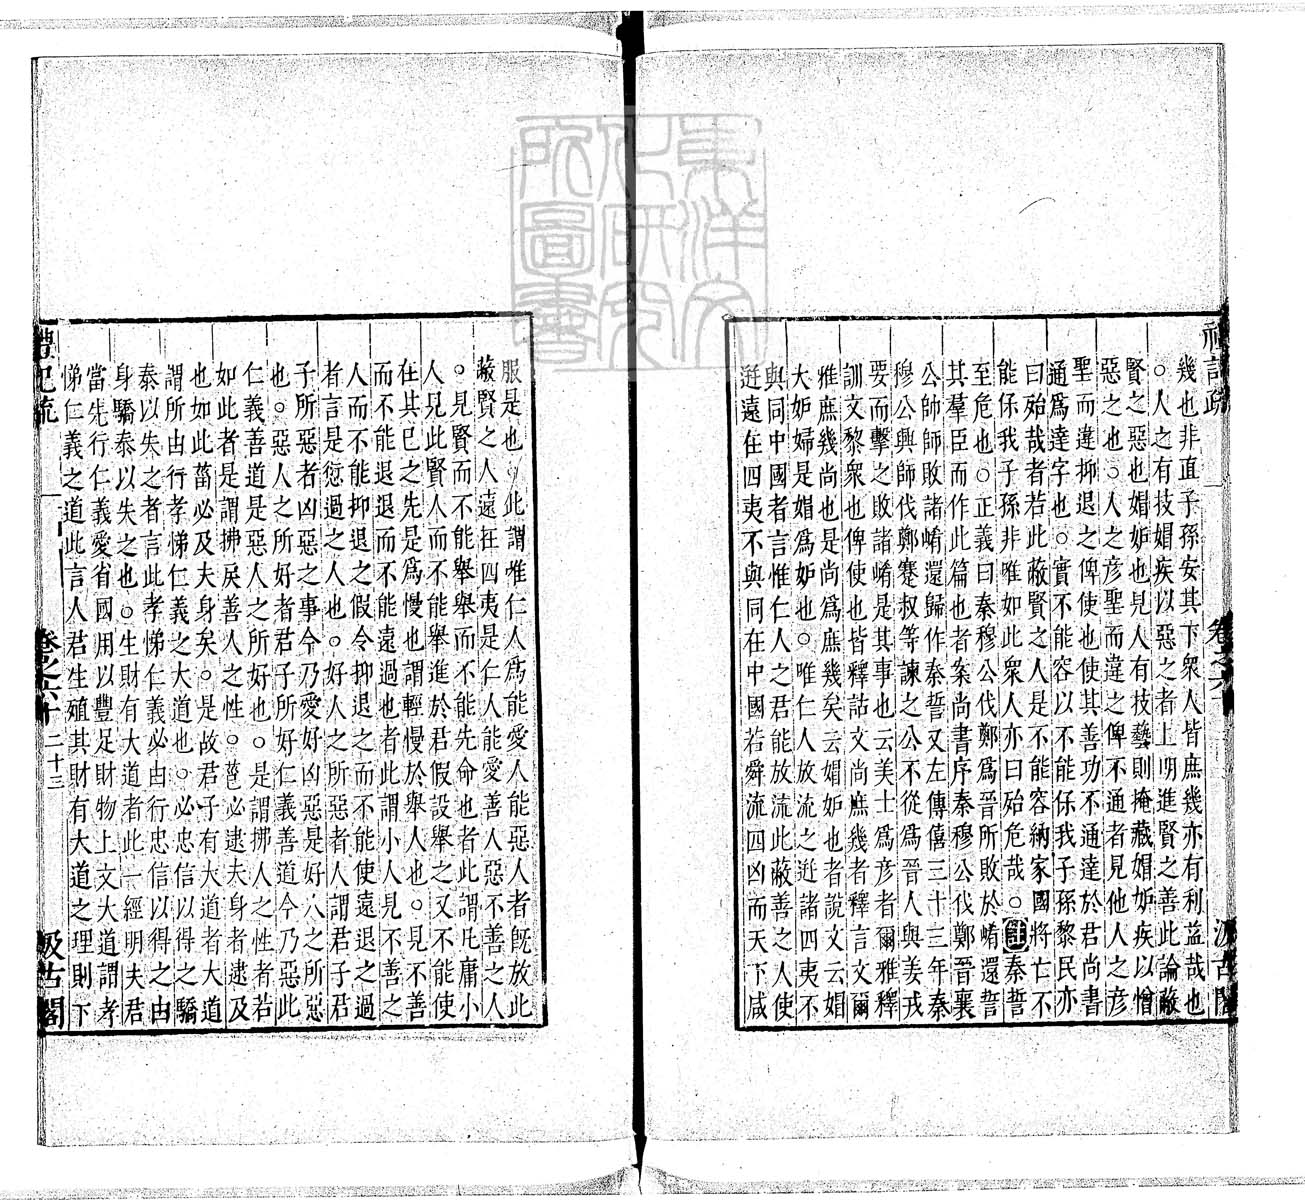 禮記疏
卷之六
汲古閣
幾也非直子孫安其下衆人皆庶幾亦有利益哉也
○人之有技媢疾以惡之者上明進賢之善此論蔽
賢之惡也媢妬也見人有技藝則掩藏媢妬疾以憎
惡之也○人之彦聖而違之俾不通者見他人之彦
聖而違抑退之俾使也使其善功不通達於君尚書
通爲達字也○實不能容以不能保我子孫黎民亦
曰殆哉者若此蔽賢之人是不能容納家國將亡不
能保我子孫非唯如此衆人亦曰殆危哉○註秦誓
至危也○正義曰秦穆公伐鄭爲晉所敗於崤還誓
其羣臣而作此篇也者案尚書序秦穆公伐鄭晉襄
公帥師敗諸崤還歸作秦誓又左傳僖三十三年秦
穆公興師伐鄭蹇叔等諫之公不從爲晉人與姜戎
要而擊之敗諸崤是其事也云美士爲彦者爾雅釋
訓文黎衆也俾使也皆釋詁文尚庶幾者釋言文爾
雅庶幾尚也是尚爲庶幾矣云媢妬也者說文云媢
夫妬婦是媢爲妬也○唯仁人放流之迸諸四夷不
與同中國者言惟仁人之君能放流此蔽善之人使
迸遠在四夷不與同在中國若舜流四凶而天下咸
服是也○此謂惟仁人爲能愛人能惡人者旣放此
蔽賢之人遠在四夷是仁人能愛善人惡不善之人
○見賢而不能舉舉而不能先命也者此謂凡庸小
人見此賢人而不能舉進於君假設舉之又不能使
在其已之先是爲慢也謂輕慢於舉人也○見不善
而不能退退而不能遠過也者此謂小人見不善之
人而不能抑退之假令抑退之而不能使遠退之過
者言是愆過之人也○好人之所惡者人謂君子君
子所惡者凶惡之事今乃愛好凶惡是好人之所惡
也○惡人之所好者君子所好仁義善道今乃惡此
仁義善道是惡人之所好也○是謂拂人之性者若
如此者是謂拂戾善人之性○菑必逮夫身者逮及
也如此菑必及夫身矣○是故君子有大道者大道
謂所由行孝悌仁義之大道也○必忠信以得之驕
泰以失之者言此孝悌仁義必由行忠信以得之由
身驕泰以失之也○生財有大道者此一經明夫君
當先行仁義愛省國用以豐足財物上文大道謂孝
悌仁義之道此言人君生殖其財有大道之理則下
禮記疏
卷之六十
二十三
汲古閣